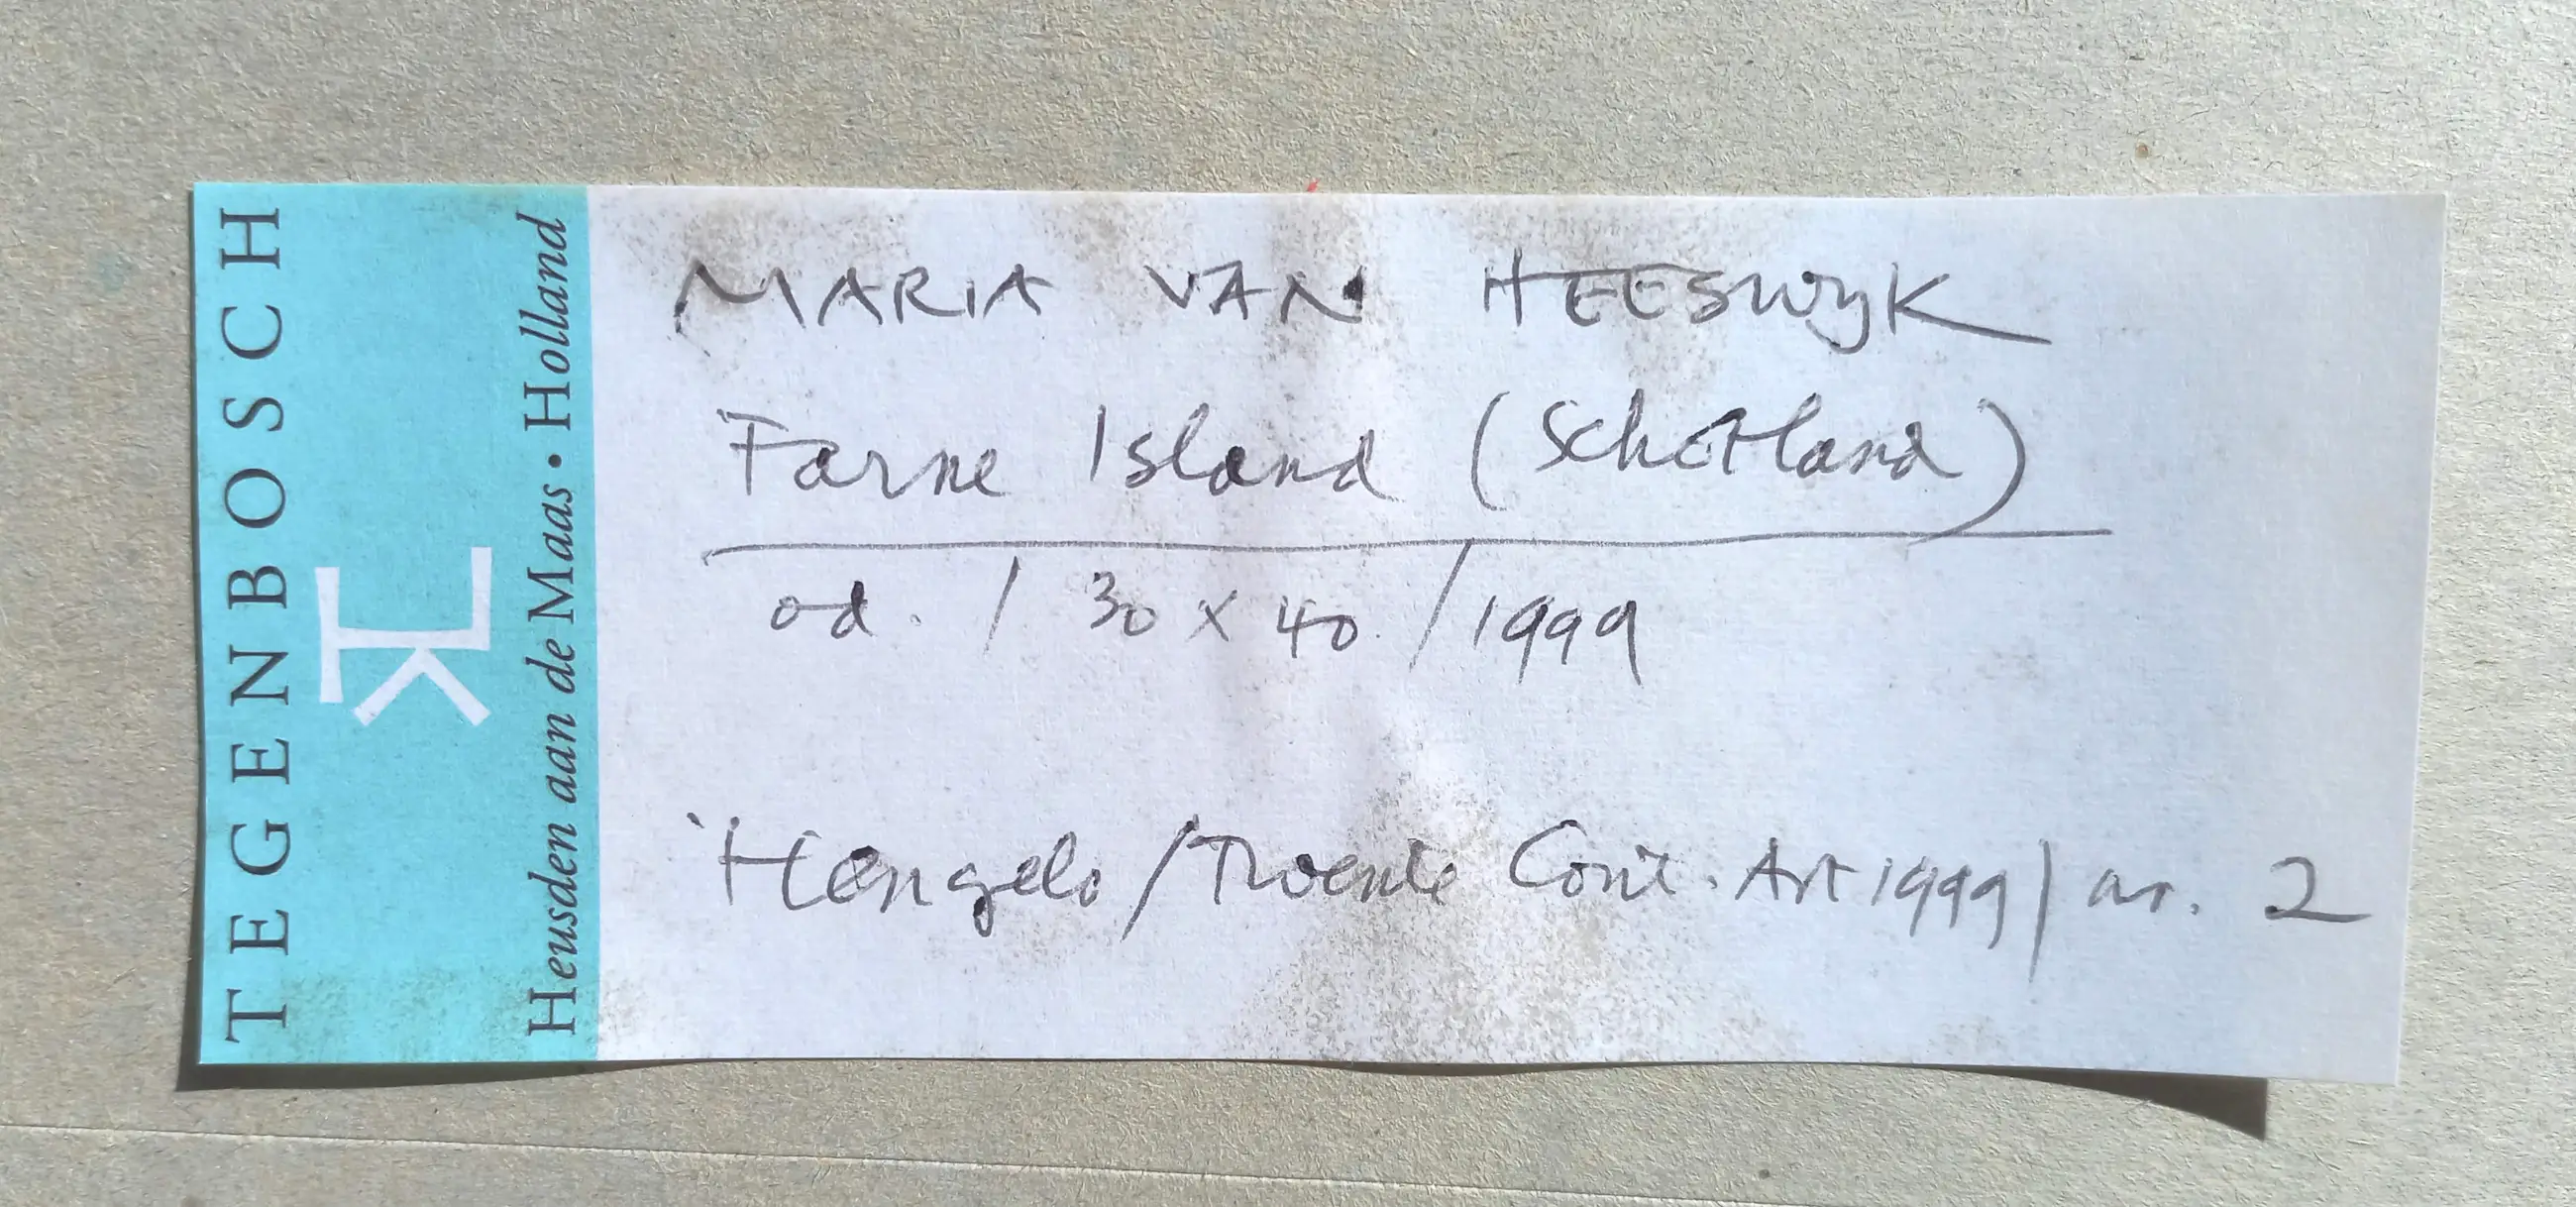 TEGENBOSCH
Heusden aan de Maas • Holland
MARIA VAN HEESWYK
Farne Island (Schotland)
od. / 30 x 40. / 1999
Hengelo / Twente Cont. Art 1999 / nr. 2